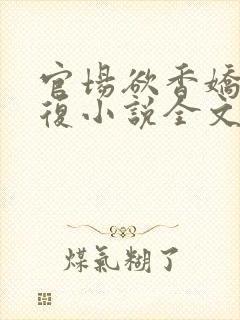 官場欲香嬌
復小說全文
煤氣糊了